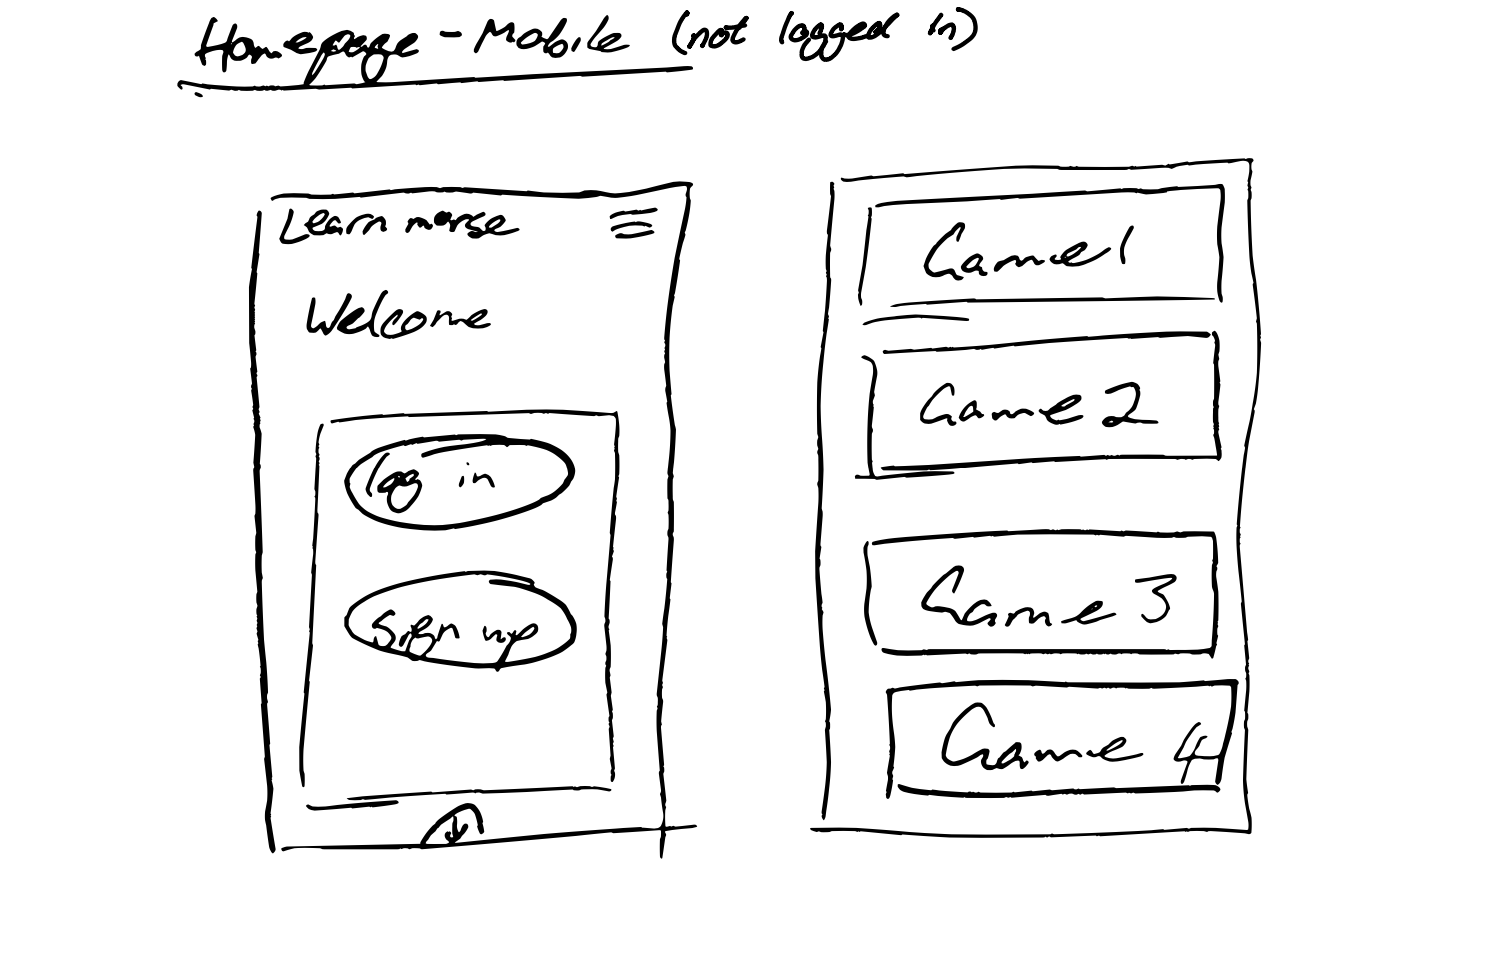 Homepage - Mobile (not logged in)
Learn morse
Welcome
log in
Sign up
Game 1
Game 2
Game 3
Game 4